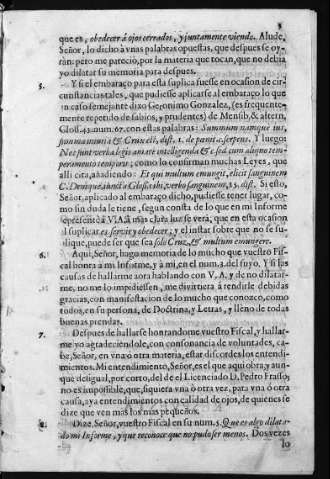 que es, obedecer á ojos cerrados, y juntamente viendo. Alude,
Señor, lo dicho à vnas palabras opuestas, que despues se oy-
ràn: pero me pareciò, por la materia que tocan, que no debia
yo dilatar su memoria para despues.
5. Y si el embaraço para esta suplica fuesse en ocasion de cir-
cunstancias tales, que pudiesse aplicarse al embaraço lo que
en caso semejante dixo Geronimo Gonzalez, (es frequente-
mente repetido de sabios, y prudentes) de Mensib. & altern,
Gloss. 43. num. 67. con estas palabras: Summum namque ius,
summa iniuria & Crux est, dist. 1. de pœnit. c. serpens. Y luego:
Nec sunt verba legis amare intelligenda & sed cum aliquo tem-
peramento temporis; como lo confirman muchas Leyes, que
alli cita, añadiendo: Et qui multum emungit, elicit sanguinem
C. Denique, iuncta Glossa ibi, verbo sanguinem, 35. dist. Si esto,
Señor, aplicado al embaraço dicho, pudiesse tener lugar, co-
mo sin duda le tiene, segun consta de lo que en mi Informe
represente à V. A. y mas clara luz se verà; que en esta ocasion
al suplicar es servir y obedecer; y el instar sobre que no se su-
plique, puede ser que sea solo Cruz, & multum emungere.
6. Aqui, Señor, hago memoria de lo mucho que vuestro Fis-
cal honra à mi Informe, y à mi, en el num. 2. del suyo. Y si las
causas de hallarme aora hablando con V. A. y de no dilatar-
me, no me lo impidiessen, me divirtiera à rendirle debidas
gracias, con manifestacion de lo mucho que conozco, como
todos, en su persona, de Doctrina, y Letras, y lleno de todas
buenas prendas.
7. Despues de hallarse honrandome vuestro Fiscal, y hallar-
me yo agradeciendole, con consonancia de voluntades, ca-
be, Señor, en vna ò otra materia, estar discordes los entendi-
mientos. Mi entendimiento, Señor, es el que aqui obra, y aun-
que desigual, por corto, del de el Licenciado D. Pedro Frasso,
no es impossible, que, siquiera vna ò otra vez, para vna ò otra
causa, aya entendimientos con calidad de ojos, de quienes se
dize que ven mas los mas pequeños.
8. Dize, Señor, vuestro Fiscal en su num. 5. Que es algo dilata-
do mi Informe, y que reconoce que no pudo ser menos. Dos vezes
lo